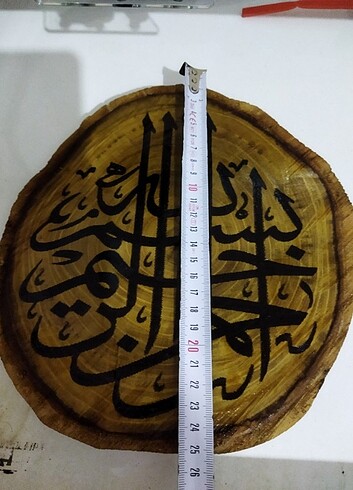 بسم الله الرحمن الرحيم
10 11 12 13 14 15 16 17 18 19 20 21 22 23 24 25 26